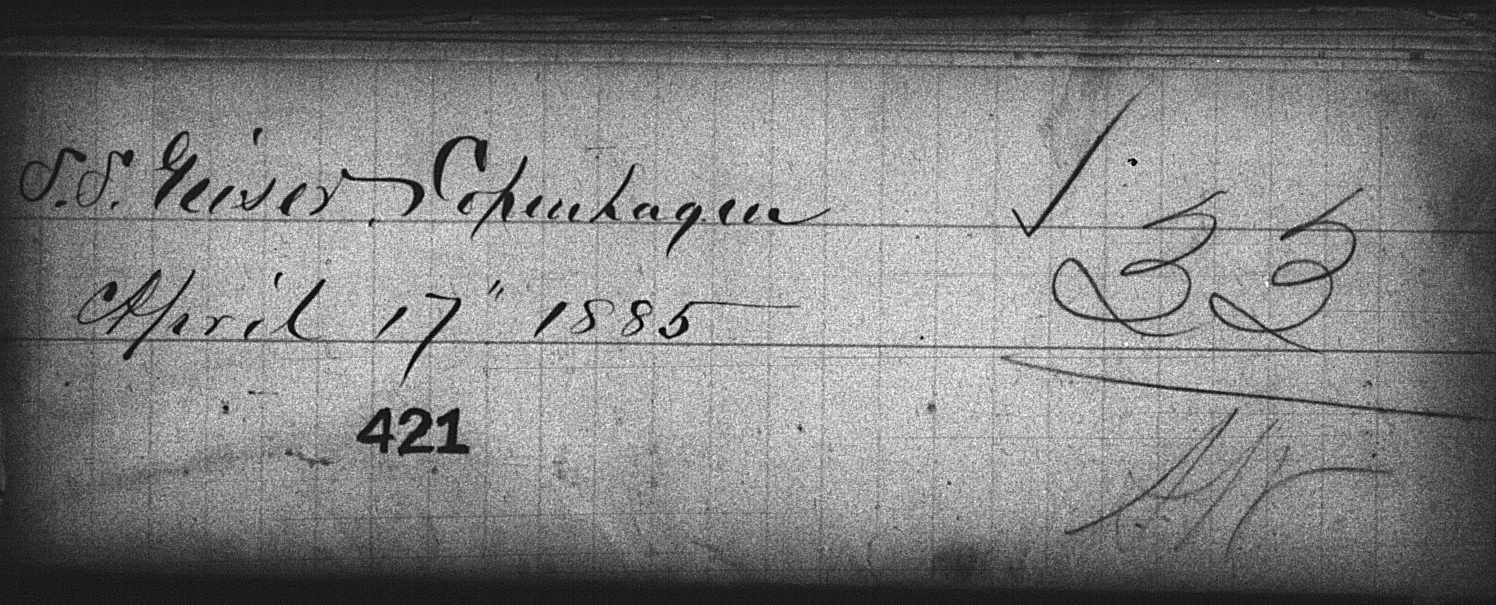 S.S. Geiser, Copenhagen
April 17" 1885
33
421